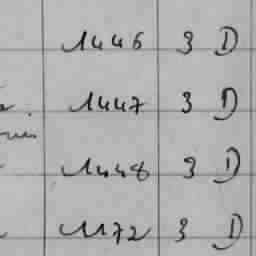 1446 3 D
1447 3 D
1448 3 D
1172 3 D